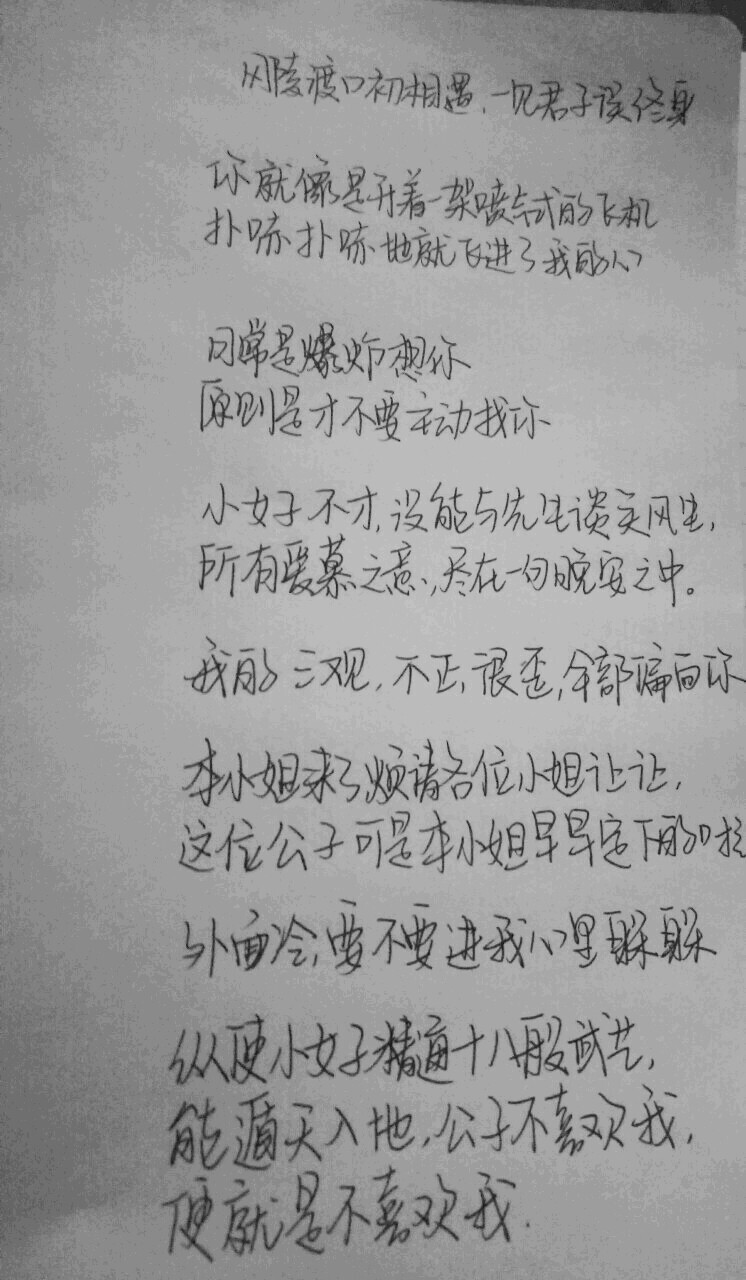 风陵渡口初相遇,一见君子误终身
你就像是开着一架喷气式的飞机
扑哧扑哧地就飞进了我的心
日常是爆炸想你
原则是才不要主动找你
小女子不才,没能与先生谈笑风生,
所有爱慕之意,尽在一句晚安之中。
我的三观,不正,很歪,全部偏向你
李小姐来了,烦请各位小姐让让,
这位公子可是李小姐早早定下的
外面冷,要不要进我心里躲躲
纵使小女子精通十八般武艺,
能遁天入地,公子不喜欢我,
便就是不喜欢我.